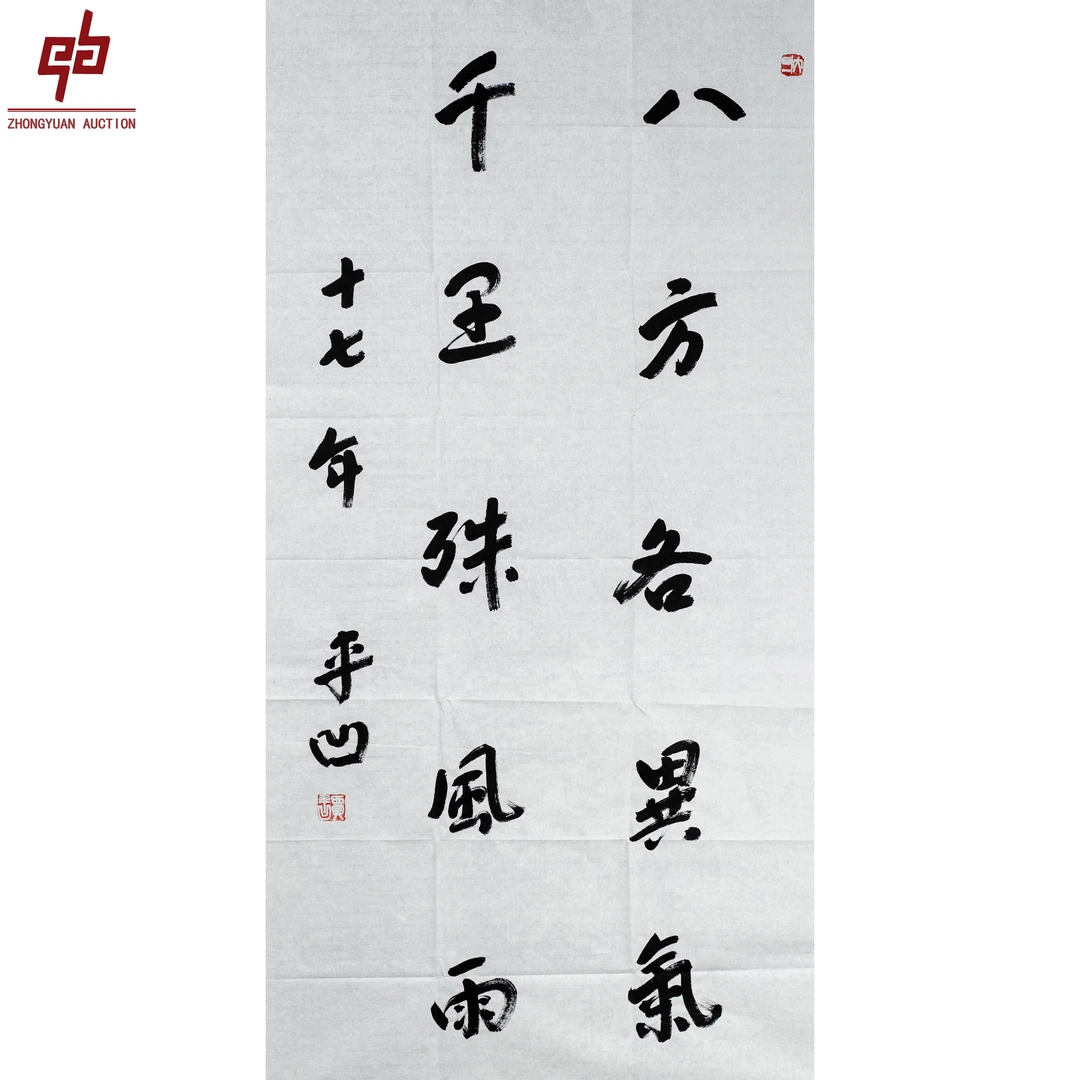 八方各異氣
千里殊風雨
十七年 平凹
ZHONGYUAN AUCTION